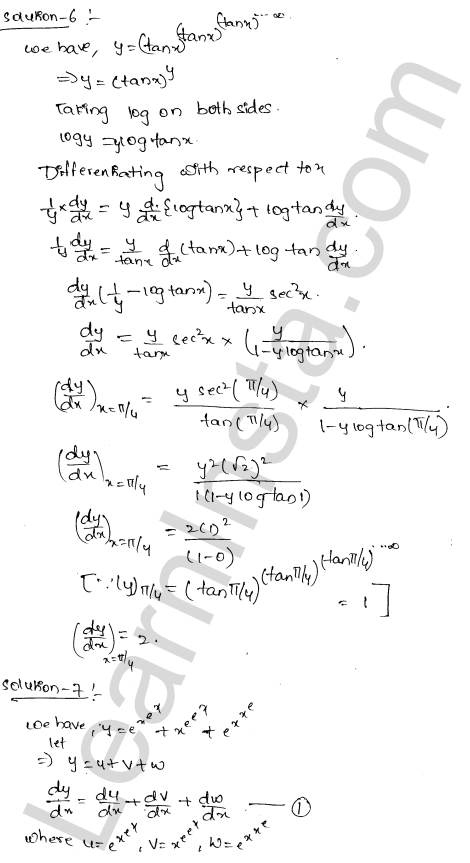 Solution-6 :-
We have, y = (tanx)^(tanx)^(tanx)^....∞
⇒ y = (tanx)^y
Taking log on both sides.
logy = ylogtanx.
Differentiating with respect to x
1/y × dy/dx = y d/dx {logtanx} + logtan dy/dx.
1/y dy/dx = y/tanx d/dx (tanx) + log tan dy/dx.
dy/dx (1/y - logtanx) = y/tanx sec²x.
dy/dx = y/tanx sec²x × (y/(1-ylogtanx)).
(dy/dx)x=π/4 = y sec²(π/4)/tan(π/4) × y/(1-ylogtan(π/4))
(dy/dx)x=π/4 = y²(√2)²/1(1-ylogtan1)
(dy/dx)x=π/4 = 2(1)²/(1-0)
[∵(y)π/4 = (tanπ/4)^(tanπ/4)^(tanπ/4)^....∞ = 1]
(dy/dx)x=π/4 = 2.
Solution-7 :-
We have, y = e^x^e^x + x^e^e^x + e^x^x^e
let
⇒ y = u+v+w
dy/dx = du/dx + dv/dx + dw/dx. —— ①
where u = e^x^e^x, v = x^e^e^x, w = e^x^x^e
LearnInsta.com